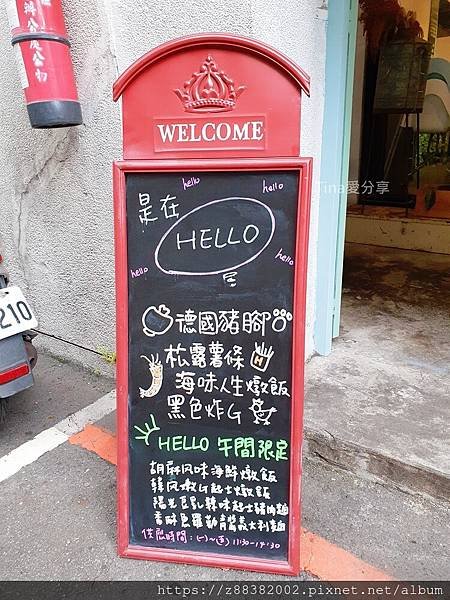 辦公
公物
WELCOME
hello
hello
是在
HELLO
hello
hello
尾
德國豬腳
松露薯條
H
海味人生燉飯
黑色炸G
HELLO 午間限定
胡麻风味海鮮燉飯
韓风炸G起士燉飯
陽光豆乳辣味起士豬肉麵
香酥色羅勒青醬義大利麵
供應時間:(一)~(五) 11:30-14:30
210
Tina愛分享
https://z88382002.pixnet.net/album